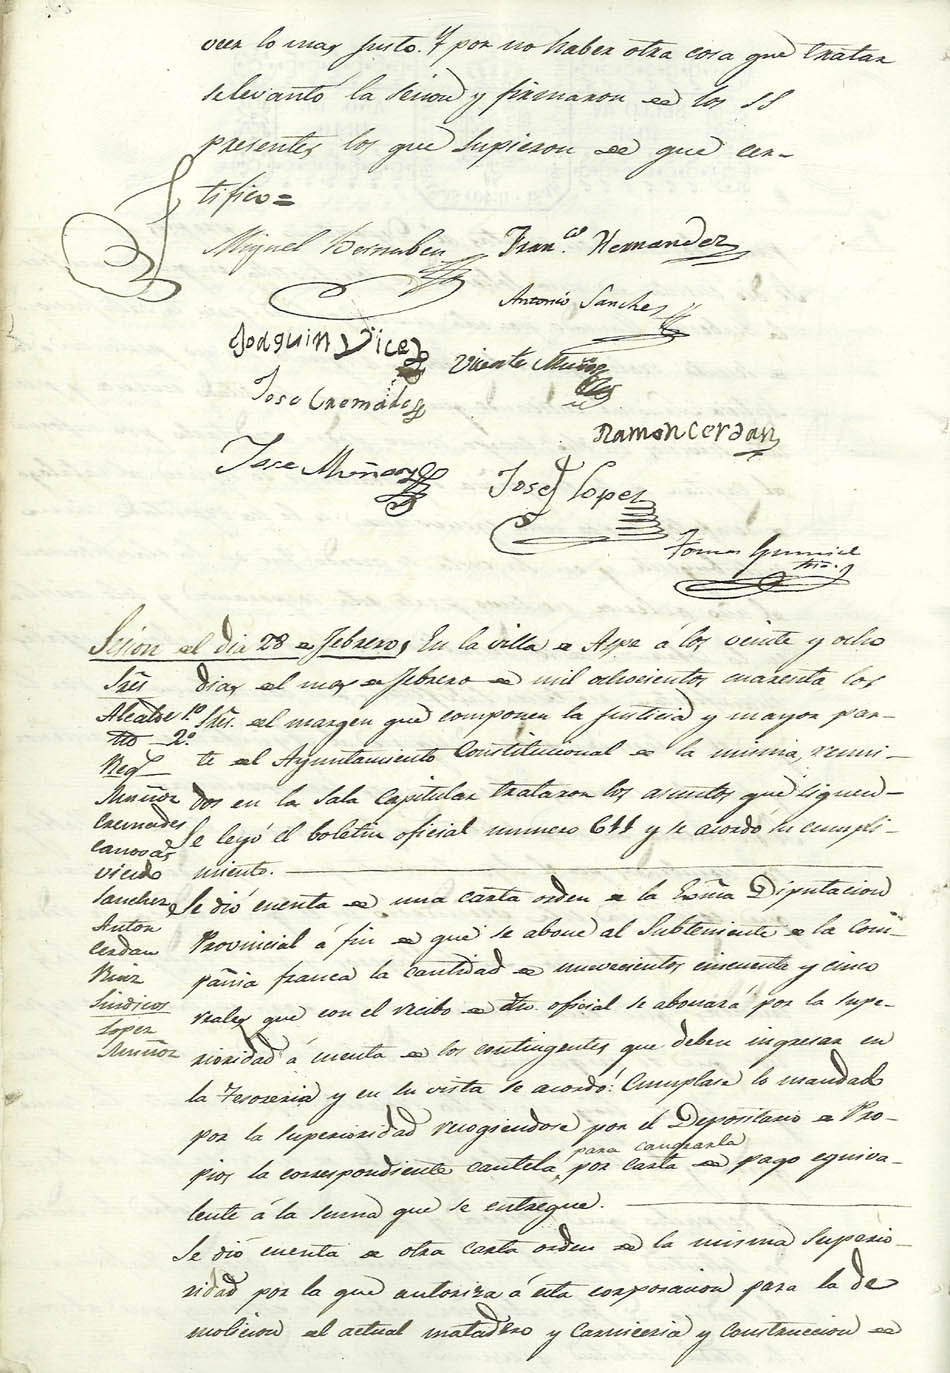 veer lo mas justo. Y por no haber otra cosa que tratar
se levantó la sesion y firmaron de los SS
presentes los que supieron de que cer-
tifico =
Miguel Bernabeu
Fran.co Hernandez
Antonio Sanchez
Joaquin Vicedo
Vicente Muñoz
Jose Cremades
Ramon Cerdan
Jose Muñoz
José Lopez
Tomas
Srio.
Sesion del dia 28 de Febrero,
En la villa de Aspe á los veinte y ocho
dias del mes de Febrero de mil ochocientos cuarenta los
Sres. del margen que componen la Justicia y mayor par-
te del Ayuntamiento Constitucional de la misma, reuni-
dos en la Sala Capitular trataron los asuntos que siguen-
Se leyó el boletin oficial numero 611 y se acordó su cumpli-
miento.
Se dió cuenta de una carta orden de la Exma Diputacion
Provincial á fin de que se abone al Subteniente de la Com-
pañia franca la cantidad de nuevecientos cincuenta y cinco
reales que con el recibo de dho. oficial se abonará por la supe-
rioridad á cuenta de los contingentes que deben ingresar en
la Tesoreria y en su vista se acordó: Cumplase lo mandado
por la superioridad recogiendose por el Depositario de Pro-
pios la correspondiente cautela, para cangearla por carta de pago equiva-
lente á la suma que se entregue.
Se dió cuenta de otra carta orden de la misma Superio-
ridad por la que autoriza á esta corporacion para la de
molicion del actual matadero y carniceria y construccion de
Sres
Alcalde 1.º
Ydo 2.º
Reg.
Muñoz
Cremades
Canovas
Vicedo
Sanchez
Anton
Cerdan
Ruiz
Sindicos
Lopez
Muñoz